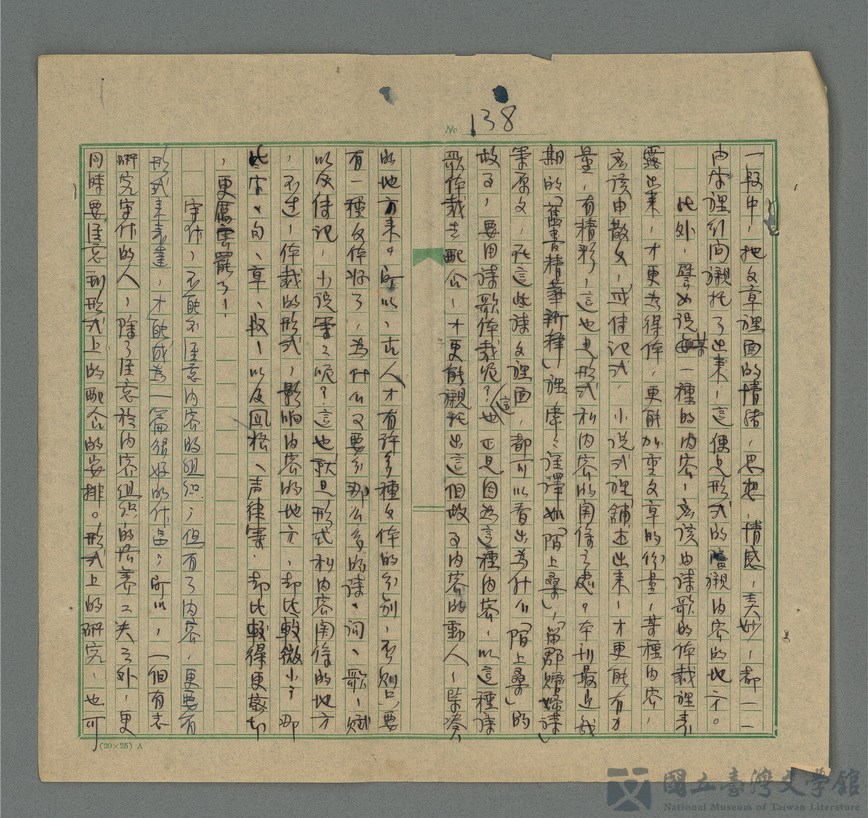 No 138
一段中，把文章裡面的情緒，思想，情感，美妙，都一一
由字裡行間襯托了出來，這便是形式的陪襯內容的地方。
此外，譬如說某一種的內容，應該由詩歌的体裁裡表
露出來，才更為得体，更能加重文章的份量，某種內容，
應該由散文，或傳記式，小說式裡舖述出來，才更能有力
量，有精彩，這也是形式和內容的關係之處。本刊最近
期的「舊書精華新釋」裡註譯如「陌上桑」，「留郡婦詩」
等原文，在這些詩文裡面，都可以看出為什么「陌上桑」的
故事，要用詩歌体裁呢？這也正是因為這種內容，以這種詩
歌体裁去配合，才更能襯托出這個故事內容的動人，緊湊
的地方來。所以，古人才有許多種文体的分別，否則只要
有一種文体好了，為什么又要分那么多的詩、詞、歌，賦
以及傳記，小說等之呢？這也就是形式和內容關係的地方
，不过，体裁的形式，影响內容的地方，都比較微小，那
比字、句、章、段，以及風格、声律等，却比較得更密切
，更厲害罷了！
寫作，不能不注意內容的組織；但有了內容，更要有
形式來表達，才能成為一篇很好的作品；所以，一個有志
研究寫作的人，除了注意於內容組織的培養工夫之外，更
同時要注意到形式上的配合的安排。形式上的研究，也可
(20×25) A
國立臺灣文學館
National Museum of Taiwan Literature